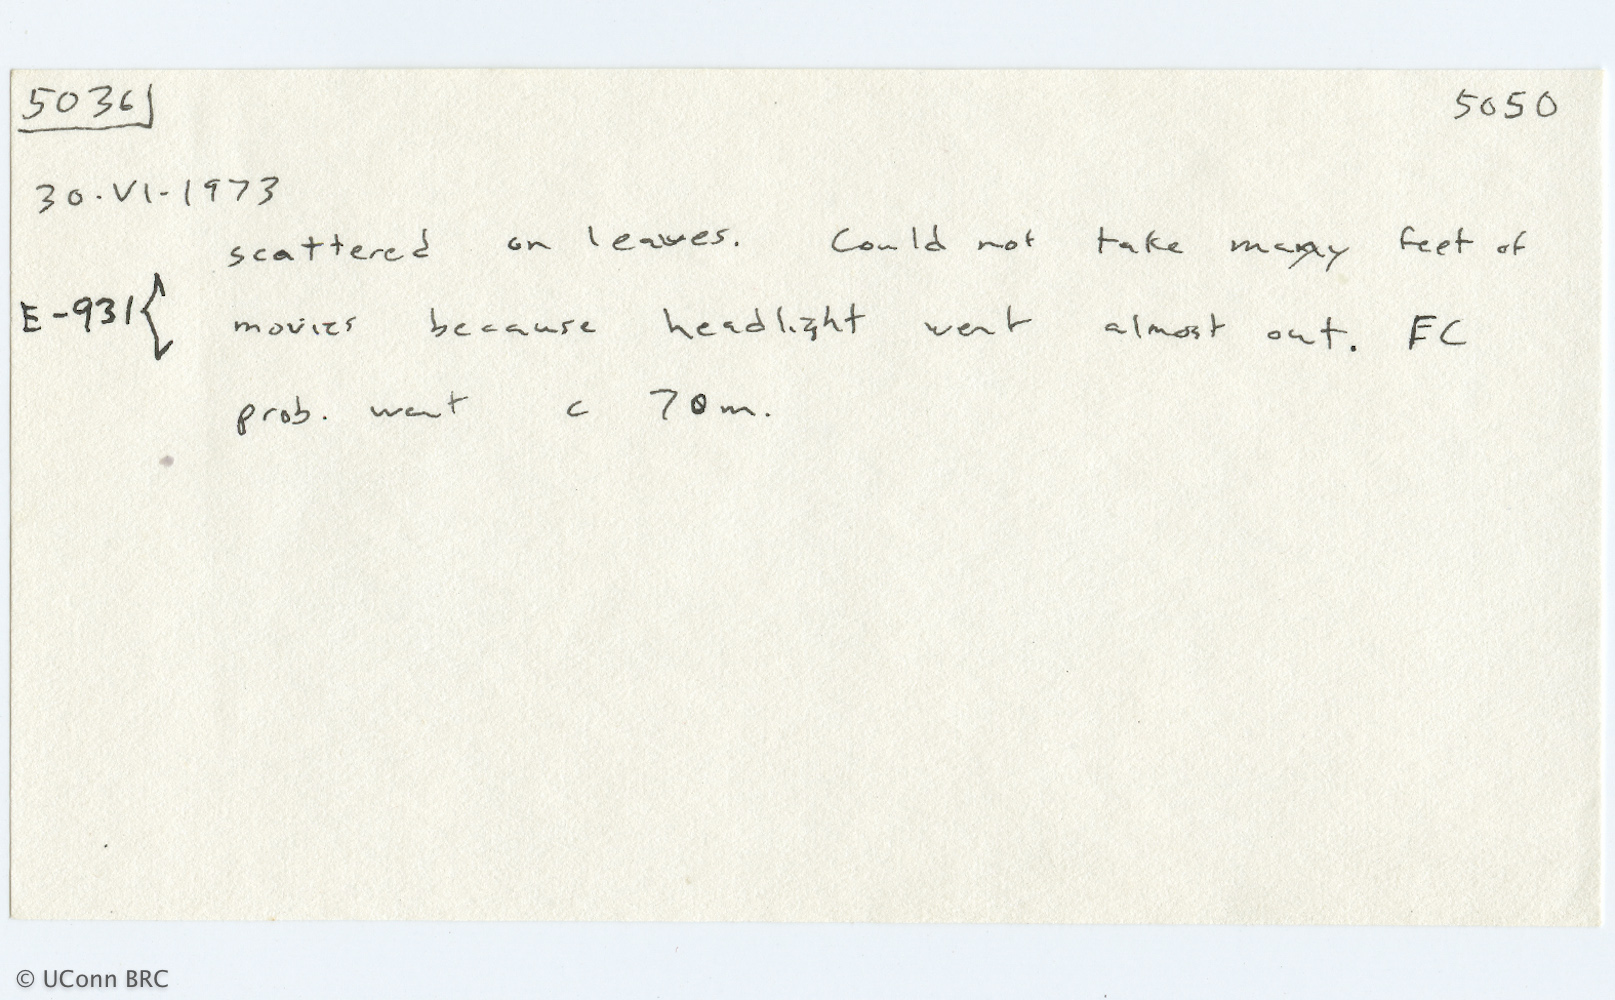 5036 5050
30.VI-1973
scattered on leaves. Could not take many feet of
E-931{ movies because headlight went almost out. EC
prob. went c 70m.
© UConn BRC